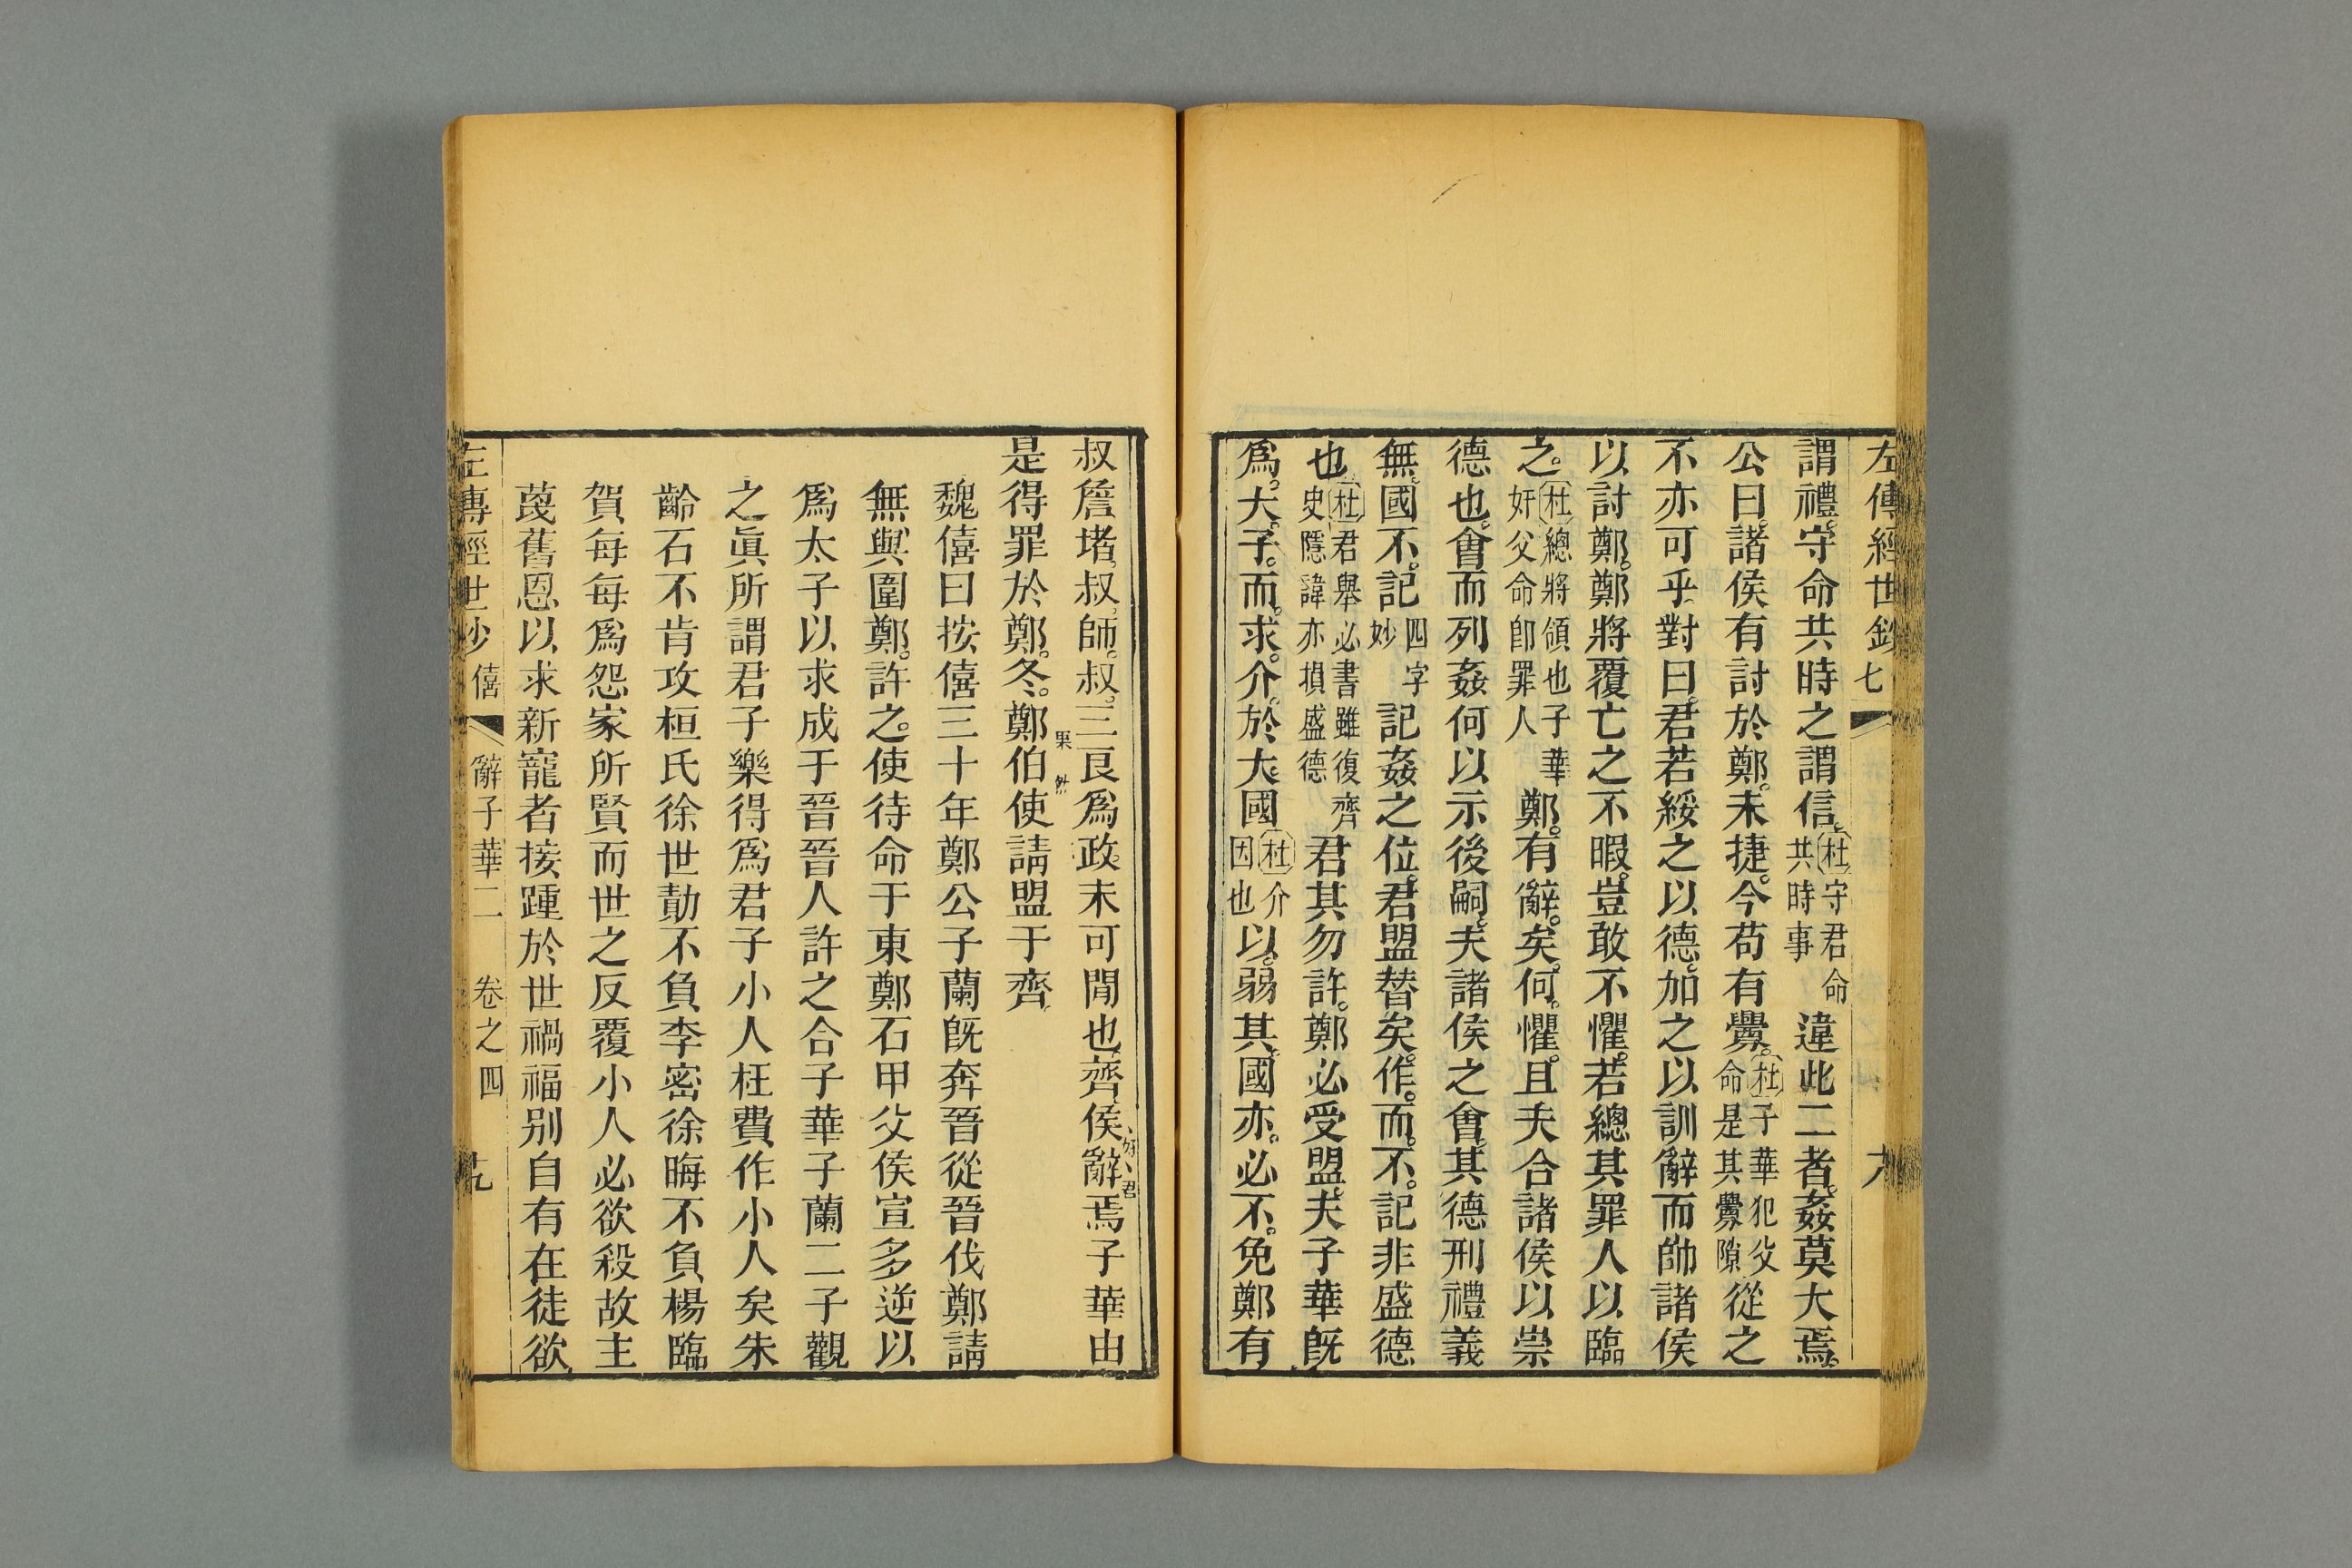 左傳經世鈔 七
謂禮守命共時之謂信杜守君命共時事違此二者姦莫大焉
公曰諸侯有討於鄭未捷今苟有釁杜子華犯父命是其釁隙從之
不亦可乎對曰君若綏之以德加之以訓辭而帥諸侯
以討鄭鄭將覆亡之不暇豈敢不懼若總其罪人以臨
之杜總將領也子華奸父命卽罪人鄭有辭矣何懼且夫合諸侯以崇
德也會而列姦何以示後嗣夫諸侯之會其德刑禮義
無國不記四字妙記姦之位君盟替矣作而不記非盛德
也杜君舉必書雖復齊史隱諱亦損盛德君其勿許鄭必受盟夫子華旣
爲大子而求介於大國杜介因也以弱其國亦必不免鄭有
叔詹堵叔師叔三良爲政未可閒也齊侯辭焉子華由
好君
果然
是得罪於鄭冬鄭伯使請盟于齊
魏僖曰按僖三十年鄭公子蘭旣奔晉從晉伐鄭請
無與圍鄭許之使待命于東鄭石甲父侯宣多逆以
爲太子以求成于晉晉人許之合子華子蘭二子觀
之眞所謂君子樂得爲君子小人枉費作小人矣朱
齡石不肯攻桓氏徐世勣不負李密徐晦不負楊臨
賀每每爲怨家所賢而世之反覆小人必欲殺故主
蔑舊恩以求新寵者接踵於世禍福别自有在徒欲
左傳經世鈔 僖 辭子華二 卷之四